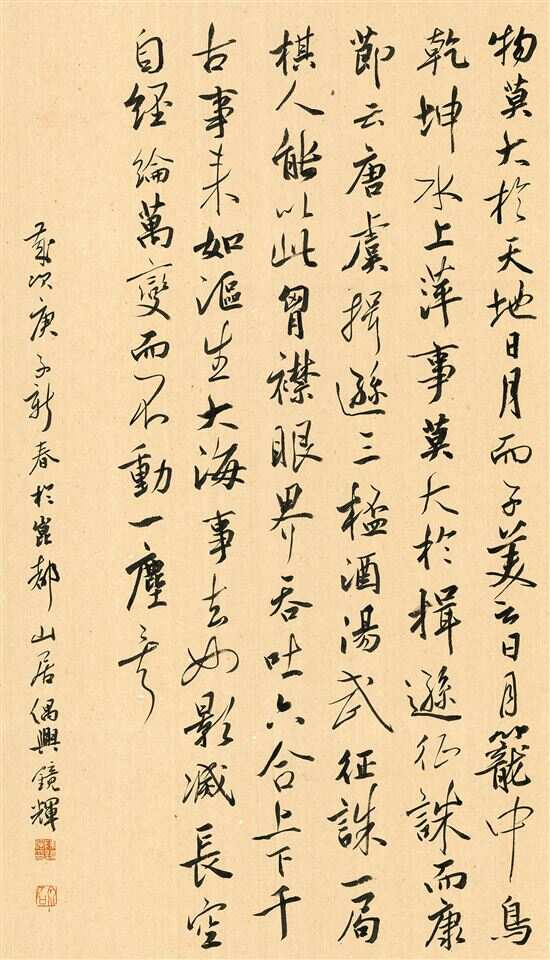 物莫大於天地日月而子美云日月籠中鳥
乾坤水上萍事莫大於揖遜征誅而康
節云唐虞揖遜三酒湯武征誅一局
棋人能以此胷襟眼界吞吐六合上下千
古事来如漚生大海事去如影滅長空
自經綸萬變而不動一塵矣
歲次庚子新春於崑都山居偶興鏡輝